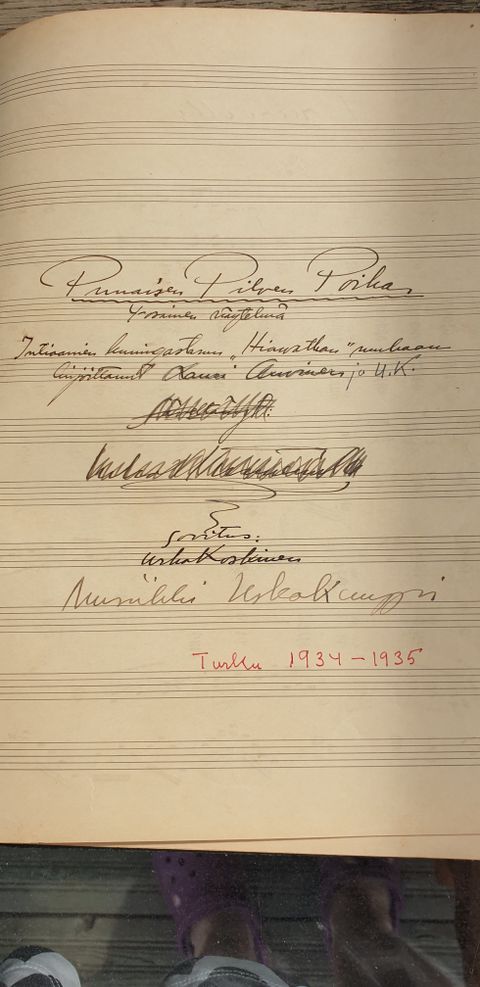 Punaisen Pilven Poika
4-osainen näytelmä
Intiaanien kuningastarun "Hiawathan" mukaan
kirjoittanut Lauri ja U.K.
Sovitus:
Urho Koskinen
Musiikki Urho Kumppi
Turku 1934-1935